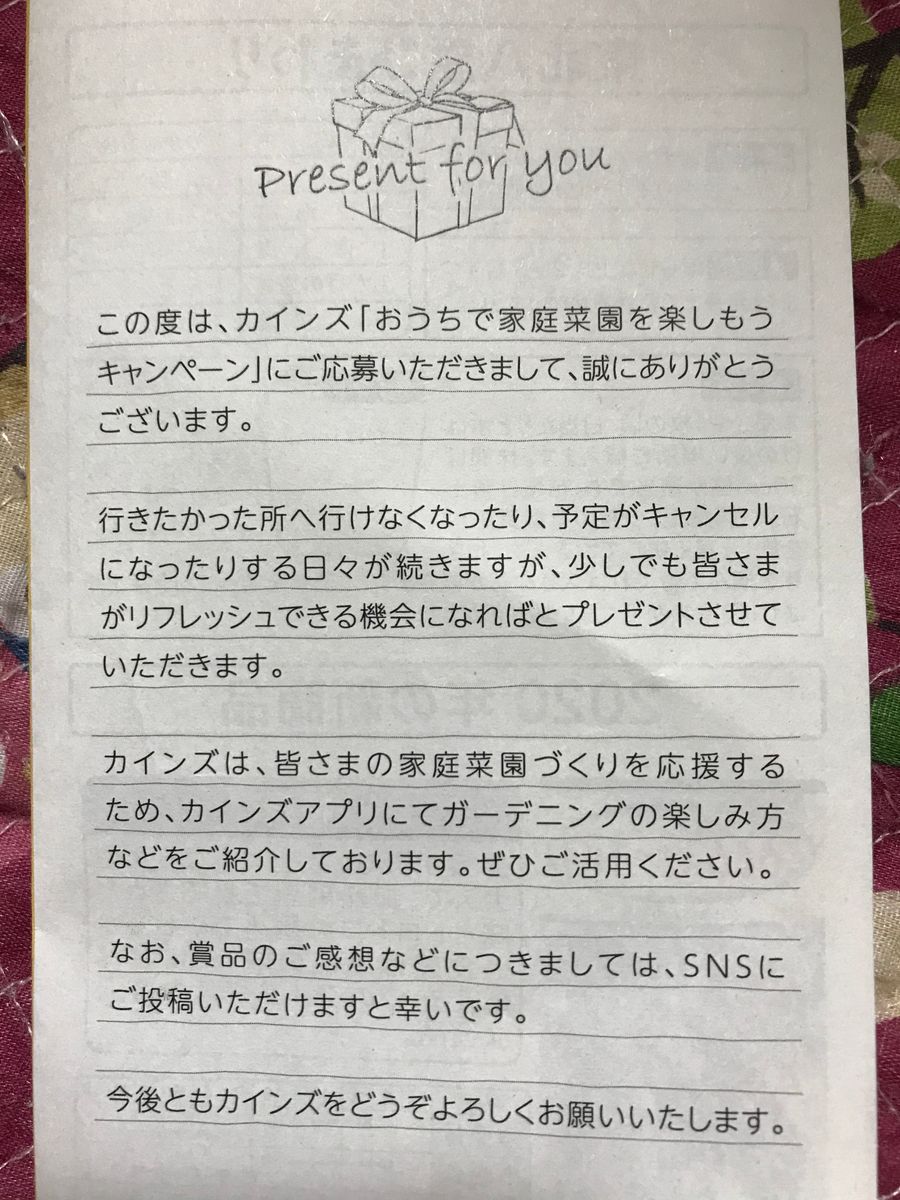 Present for you
この度は、カインズ「おうちで家庭菜園を楽しもう
キャンペーン」にご応募いただきまして、誠にありがとう
ございます。
行きたかった所へ行けなくなったり、予定がキャンセル
になったりする日々が続きますが、少しでも皆さま
がリフレッシュできる機会になればとプレゼントさせて
いただきます。
カインズは、皆さまの家庭菜園づくりを応援する
ため、カインズアプリにてガーデニングの楽しみ方
などをご紹介しております。ぜひご活用ください。
なお、賞品のご感想などにつきましては、SNSに
ご投稿いただけますと幸いです。
今後ともカインズをどうぞよろしくお願いいたします。